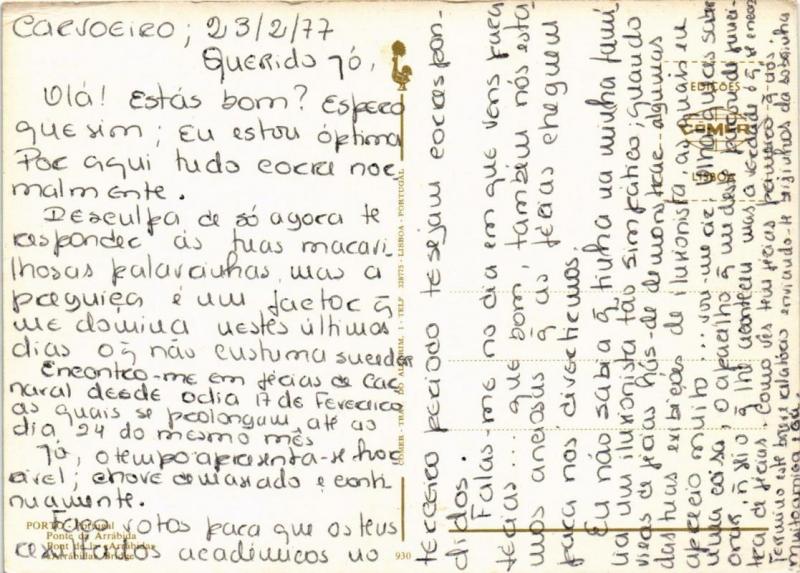 Carvoeiro; 23/2/77
Querido Jó,
Olá! Estás bom? Espero
que sim; Eu estou óptima
Por aqui tudo corre nor
malmente.
Desculpa de só agora te
responder às tuas maravi-
lhosas palavrinhas, mas a
preguiça é um factor q̃
me domina nestes últimos
dias o q̃ não custuma suceder
Encontro-me em férias de Car
naval desde o dia 17 de Fevereiro
as quais se prolongam até ao
dia 24 do mesmo mês
Jó, o tempo apresenta-se hor
rível; chove demasiado e conti
nuamente.
Faço votos para que os teus
resultados académicos no
terceiro período te sejam correspon-
didos.
Falas-me no dia em que vens para
férias... que bom, também nós esta
mos anciosos q̃ as férias cheguem
para nos divertirmos.
Eu não sabia q̃ tinha na minha famí
lia um iluxionista tão simpático; quando
vieres de férias hás-de demonstrar algumas
das tuas exibições de iluxionista, as quais eu
aprecio muito... vou-me rir,
uma coisa, o aparelho q̃ me deste
orar, não sei o q̃ lhe aconteceu mas a verdade é q̃ se
tra de férias. Como vês tem férias
Termino este breve relatório enviando-te
muito amiga
EDIÇÕES
COMER
LISBOA
COMER - TRAV. DO ALECRIM, 1 - TELF. 328775 - LISBOA - PORTUGAL
PORTO - Portugal
Ponte da Arrábida
Pont de la Arrábida
Arrábida's Bridge
930